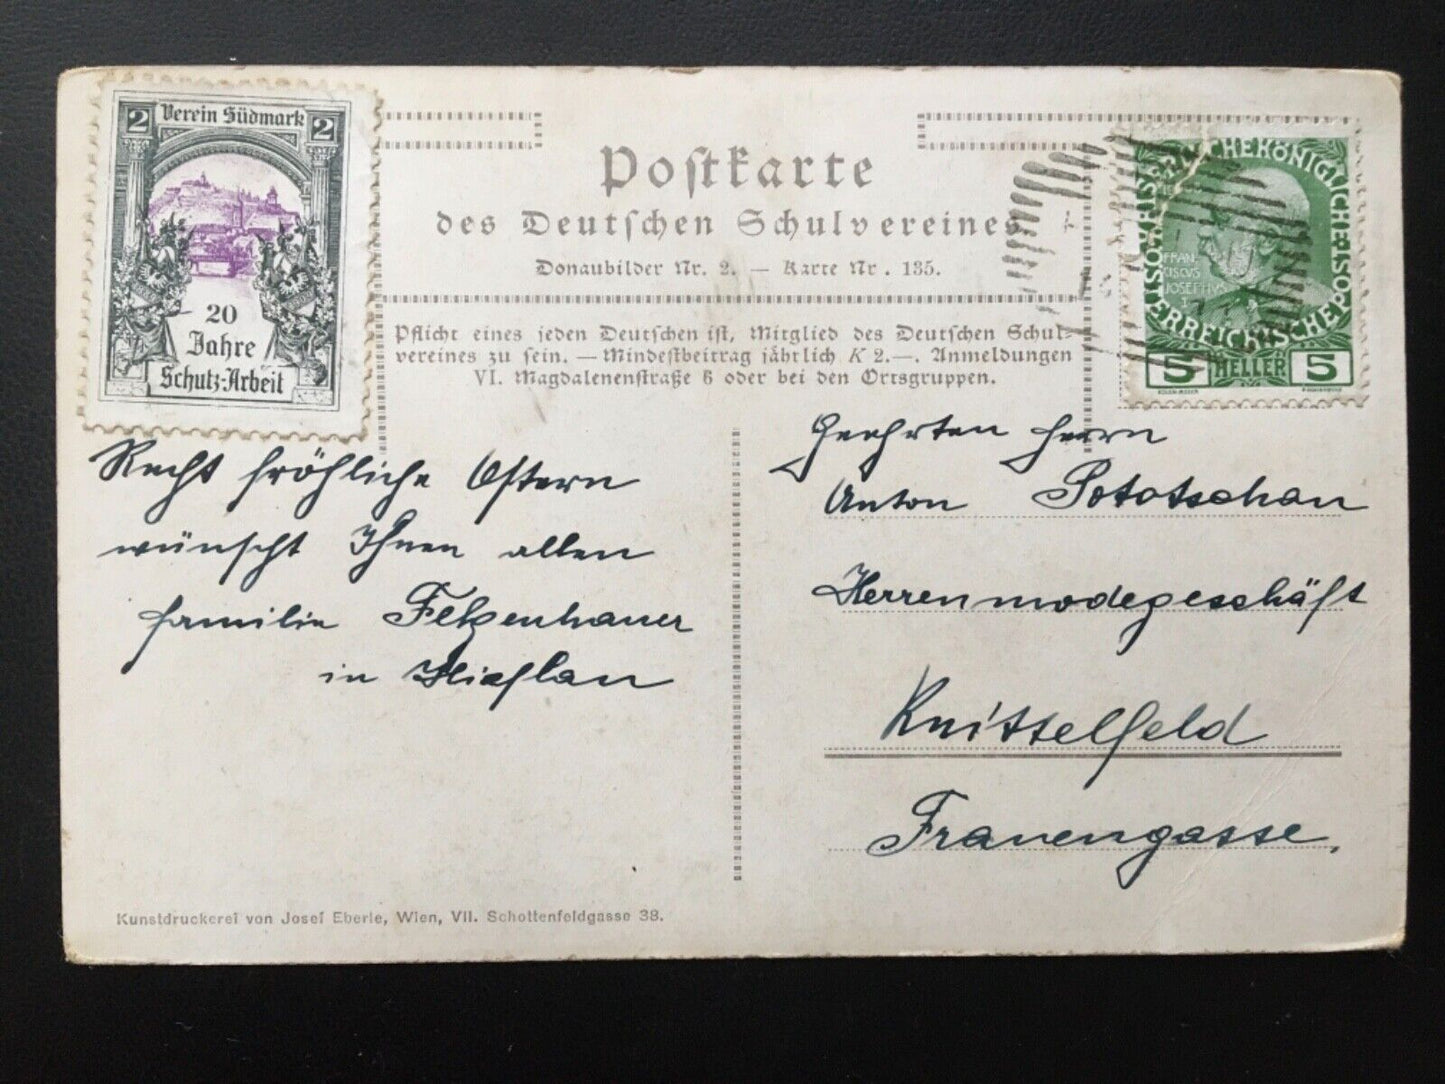 2 Verein Südmark 2
20
Jahre
Schutz-Arbeit
Postkarte
des Deutschen Schulvereines
Donaubilder Nr. 2. — Karte Nr. 135.
Pflicht eines jeden Deutschen ist, Mitglied des Deutschen Schul-
vereines zu sein. — Mindestbeitrag jährlich K 2.—. Anmeldungen
VI. Magdalenenstraße 6 oder bei den Ortsgruppen.
FRAN
CISCVS
JOSEPHVS
I
5 HELLER 5
Recht fröhliche Ostern
wünscht Ihnen allen
Familie Felzenhauer
in Hieflau
Geehrten Herrn
Anton Pototschan
Herrenmodegeschäft
Knittelfeld
Frauengasse.
Kunstdruckerei von Josef Eberle, Wien, VII. Schottenfeldgasse 38.